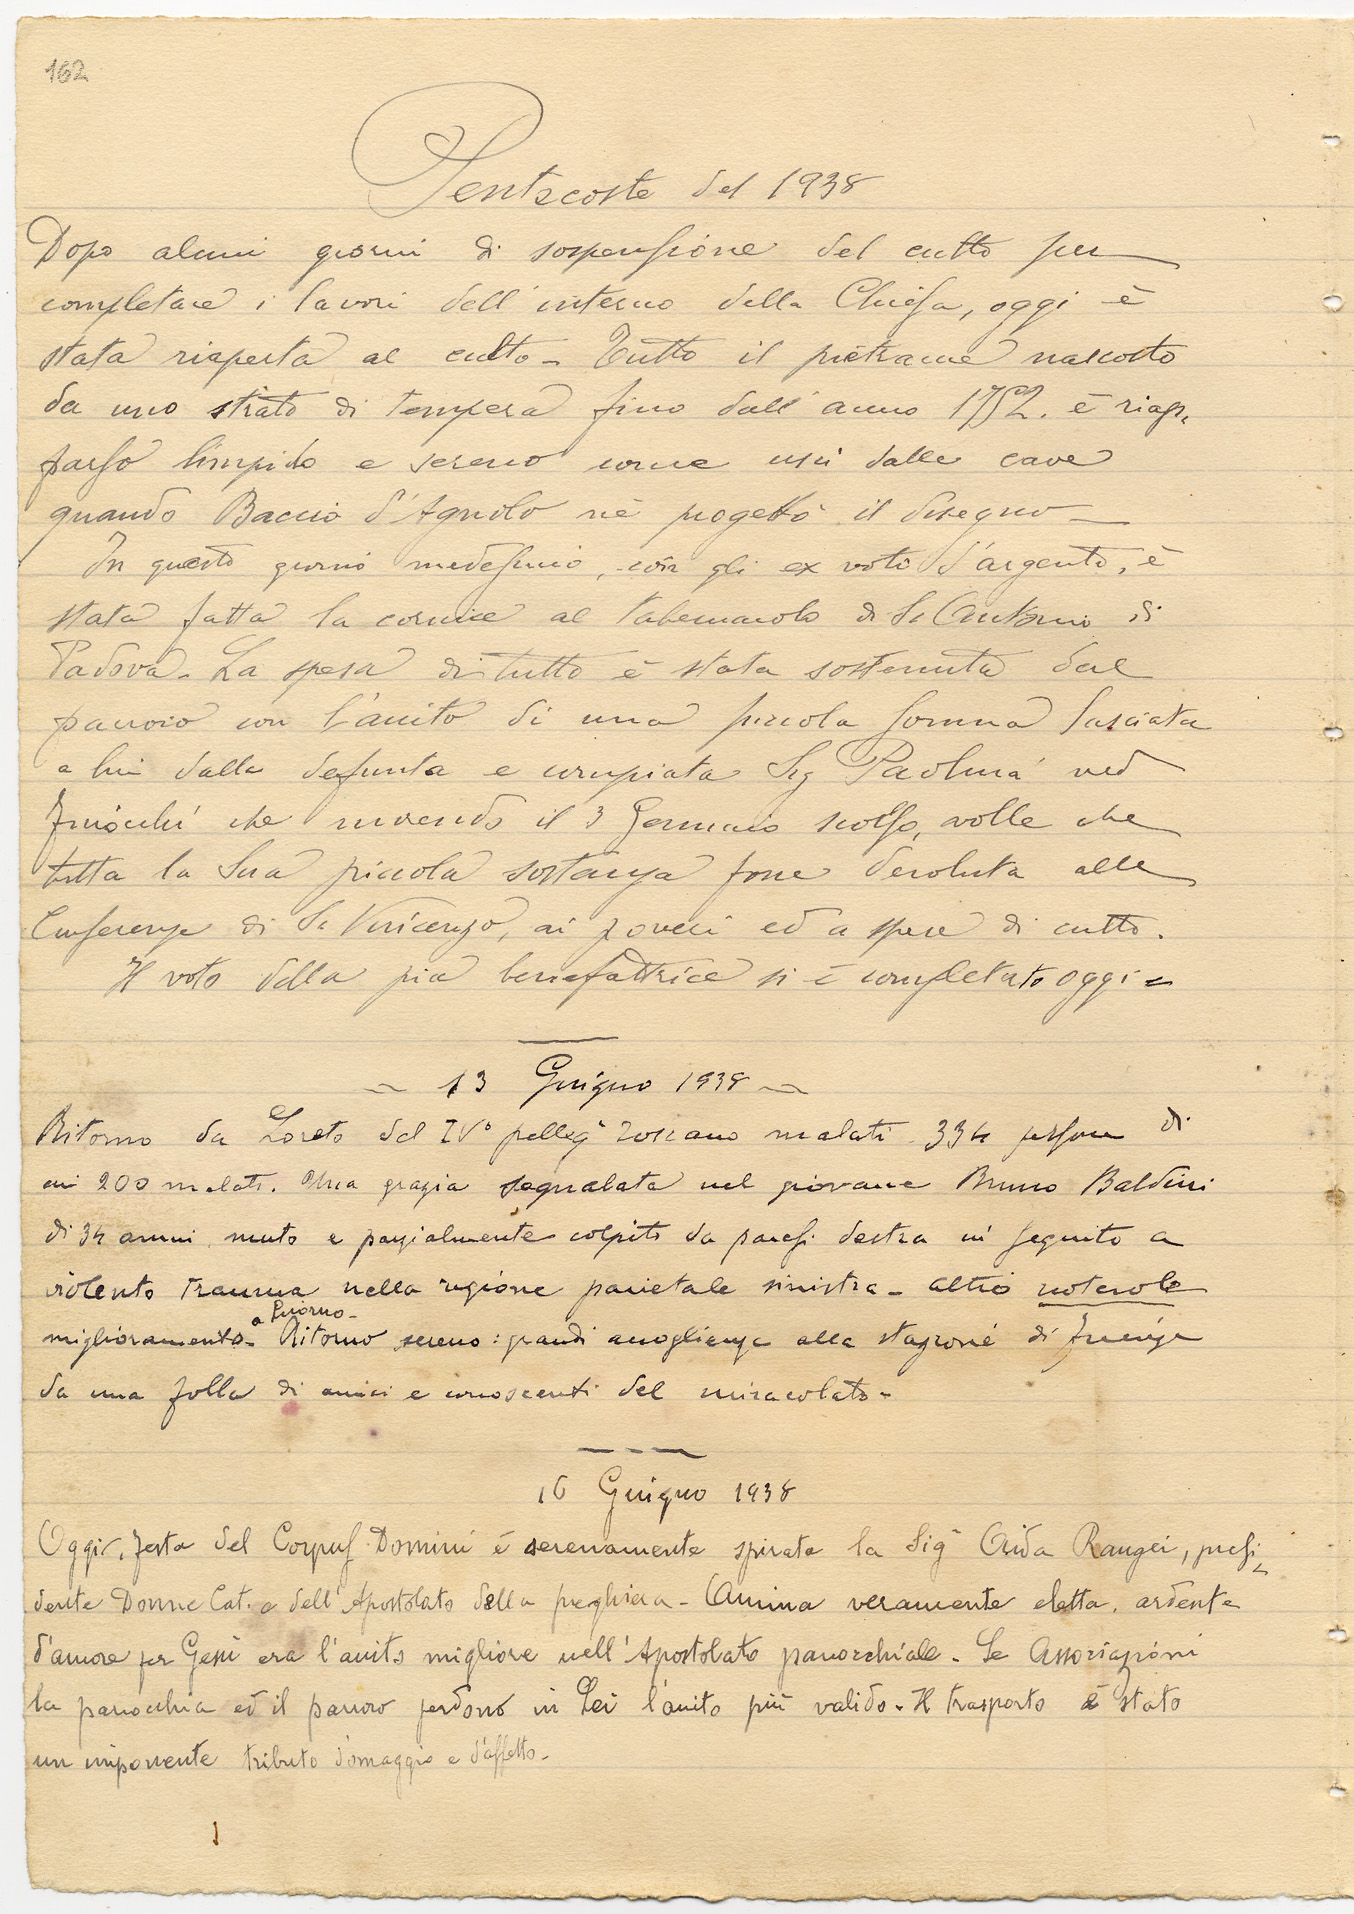 162
Pentecoste del 1938
Dopo alcuni giorni di sospensione del culto per
completare i lavori dell'interno della Chiesa, oggi è
stata riaperta al culto - Tutto il pietrame nascosto
da uno strato di tempera fino dall'anno 1752. è riap-
parso limpido e sereno come uscì dalle cave
quando Baccio d'Agnolo né progettò il disegno -
In questo giorno medesimo, con gli ex voto d'argento, è
stata fatta la cornice al tabernacolo di S. Antonio di
Padova. La spesa di tutto è stata sostenuta dal
parroco con l'aiuto di una piccola somma lasciata
a lui dalla defunta e compianta Sig Paolina ved
che morendo il 3 Gennaio scorso, volle che
tutta la Sua piccola sostanza fosse devoluta alle
Conferenze di S. Vincenzo, ai poveri ed a spese di culto.
Il voto della pia benefattrice si è completato oggi -
13 Giugno 1938
Ritorno da Loreto del IV° pelleg° Toscano malati 334 persone di
cui 200 malati. Una grazia segnalata nel giovane Bruno Baldini
di 34 anni muto e parzialmente colpito da paresi destra in seguito a
violento trauma nella regione parietale sinistra - altrio notevole
a Livorno -
miglioramento - Ritorno sereno: grandi accoglienze alla stazione di Firenze
da una folla di amici e conoscenti del miracolato -
16 Giugno 1938
Oggi, festa del Corpus Domini è serenamente spirata la Sigª Aida Raugei, presi-
dente Donne Cat. e dell'Apostolato della preghiera - Anima veramente eletta, ardente
d'amore per Gesù era l'aiuto migliore nell'Apostolato parrocchiale. Le Associazioni
la parrocchia ed il parroco perdono in Lei l'aiuto più valido. Il trasporto è stato
un imponente tributo d'omaggio e d'affetto -